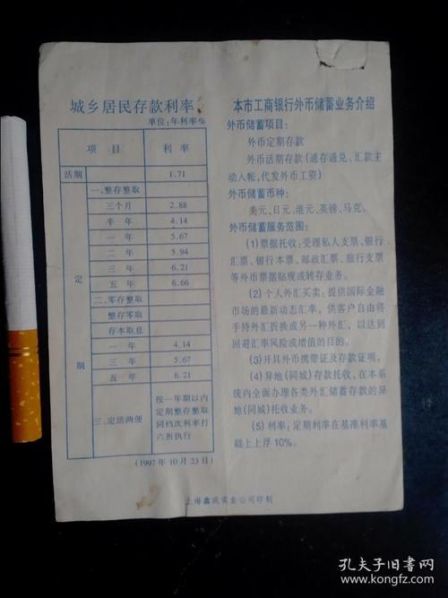 城乡居民存款利率
单位:年利率%
项 目 利 率
活期 1.71
定期
一、整存整取
三个月 2.88
半 年 4.14
一 年 5.67
二 年 5.94
三 年 6.21
五 年 6.66
二、零存整取
整存零取
存本取息
一 年 4.14
三 年 5.67
五 年 6.21
三、定活两便
按一年期以内
定期整存整取
同档次利率打
六折执行
(1997年10月23日)
本市工商银行外币储蓄业务介绍
外币储蓄项目:
外币定期存款
外币活期存款(通存通兑、汇款主
动入帐,代发外币工资)
外币储蓄币种:
美元、日元、港元、英镑、马克。
外币储蓄服务范围:
(1)票据托收:受理私人支票、银行
汇票、银行本票、邮政汇票、旅行支票
等外币票据贴现或转存业务。
(2)个人外汇买卖:提供国际金融
市场的最新动态汇率,供客户自由将
手持外汇折换成另一种外汇,以达到
回避汇率风险或增值的目的。
(3)开具外币携带证及存款证明。
(4)异地(同城)存款托收,在本系
统内全面办理各类外汇储蓄存款的异
地(同城)托收业务。
(5)利率:定期利率在基准利率基
础上上浮10%。
孔夫子旧书网
www.kongfz.com